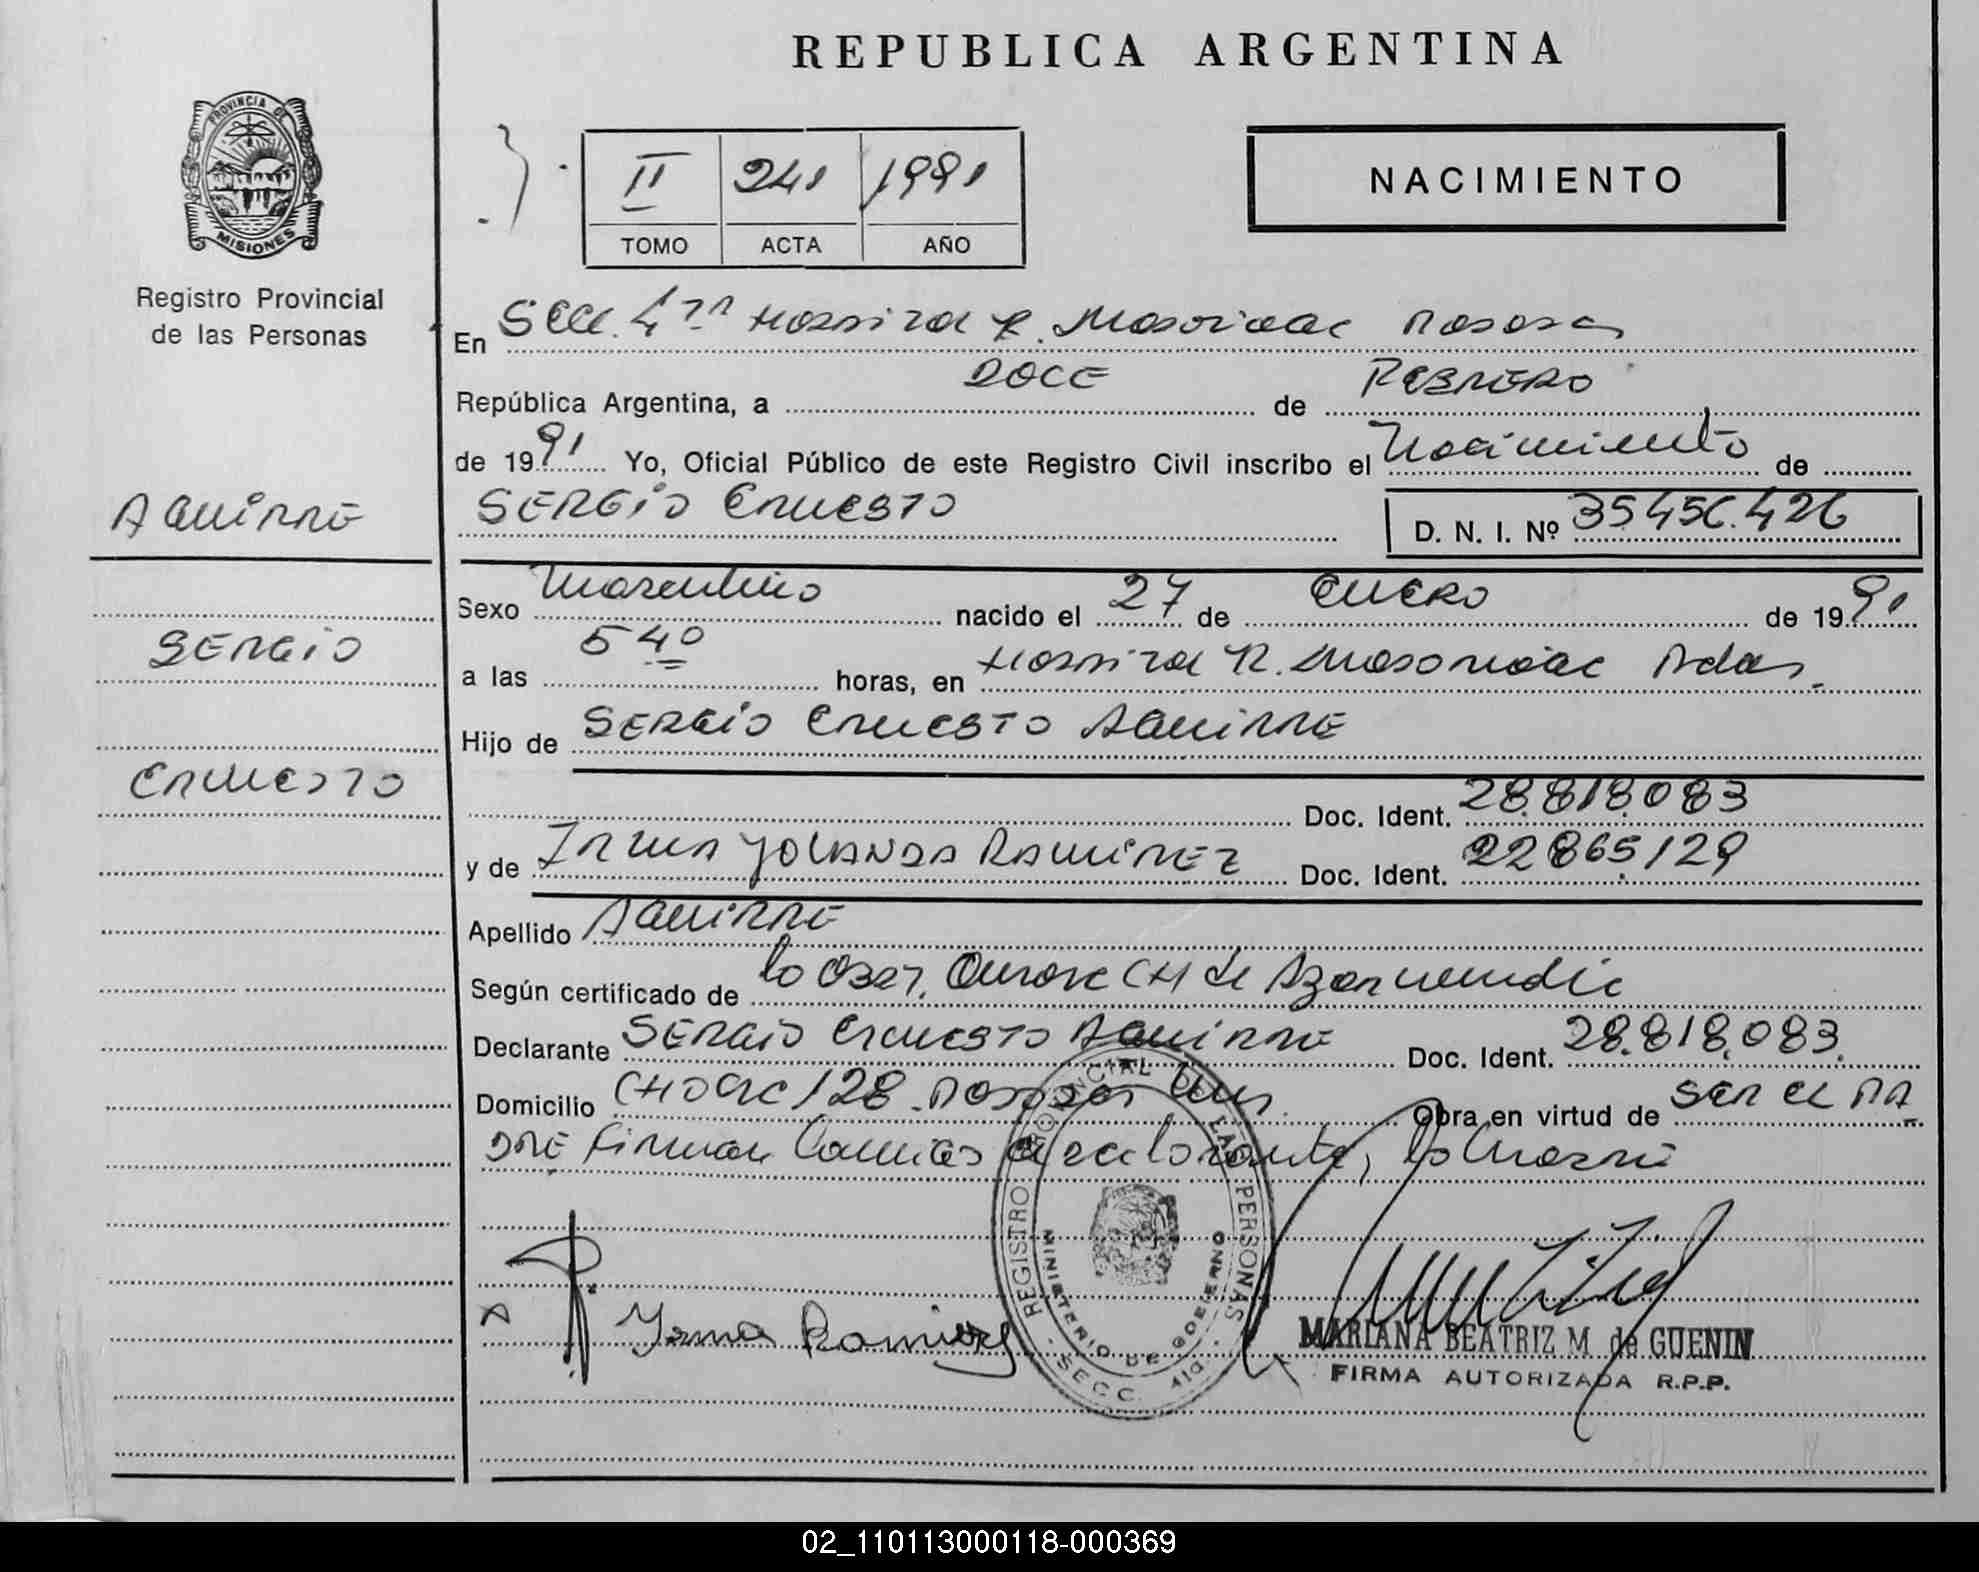 REPUBLICA ARGENTINA
PROVINCIA DE
MISIONES
Registro Provincial
de las Personas
II 241 1991
TOMO ACTA AÑO
NACIMIENTO
En Secc. 4ta Hospital R. Madariaga Posadas
República Argentina, a DOCE de FEBRERO
de 1991 Yo, Oficial Público de este Registro Civil inscribo el Nacimiento de
AGUIRRE
SERGIO ERNESTO
D. N. I. Nº 35456.426
Sexo Masculino nacido el 27 de ENERO de 1991
SERGIO
a las 5 40 horas, en Hospital R. Madariaga Pdas.
Hijo de SERGIO ERNESTO AGUIRRE
ERNESTO
Doc. Ident. 28.818.083
y de IRMA YOLANDA RAMIREZ Doc. Ident. 22865129
Apellido AGUIRRE
Según certificado de la Obst. CH de
Declarante SERGIO ERNESTO AGUIRRE Doc. Ident. 28.818.083.
Domicilio 128 Posadas Obra en virtud de SER EL PA
DRE Firman declarante, la Madre
Irma Ramirez
REGISTRO PROVINCIAL DE LAS PERSONAS
MINISTERIO DE GOBIERNO
SECC. 4ta.
MARIANA BEATRIZ M. de GUENIN
FIRMA AUTORIZADA R.P.P.
02_110113000118-000369